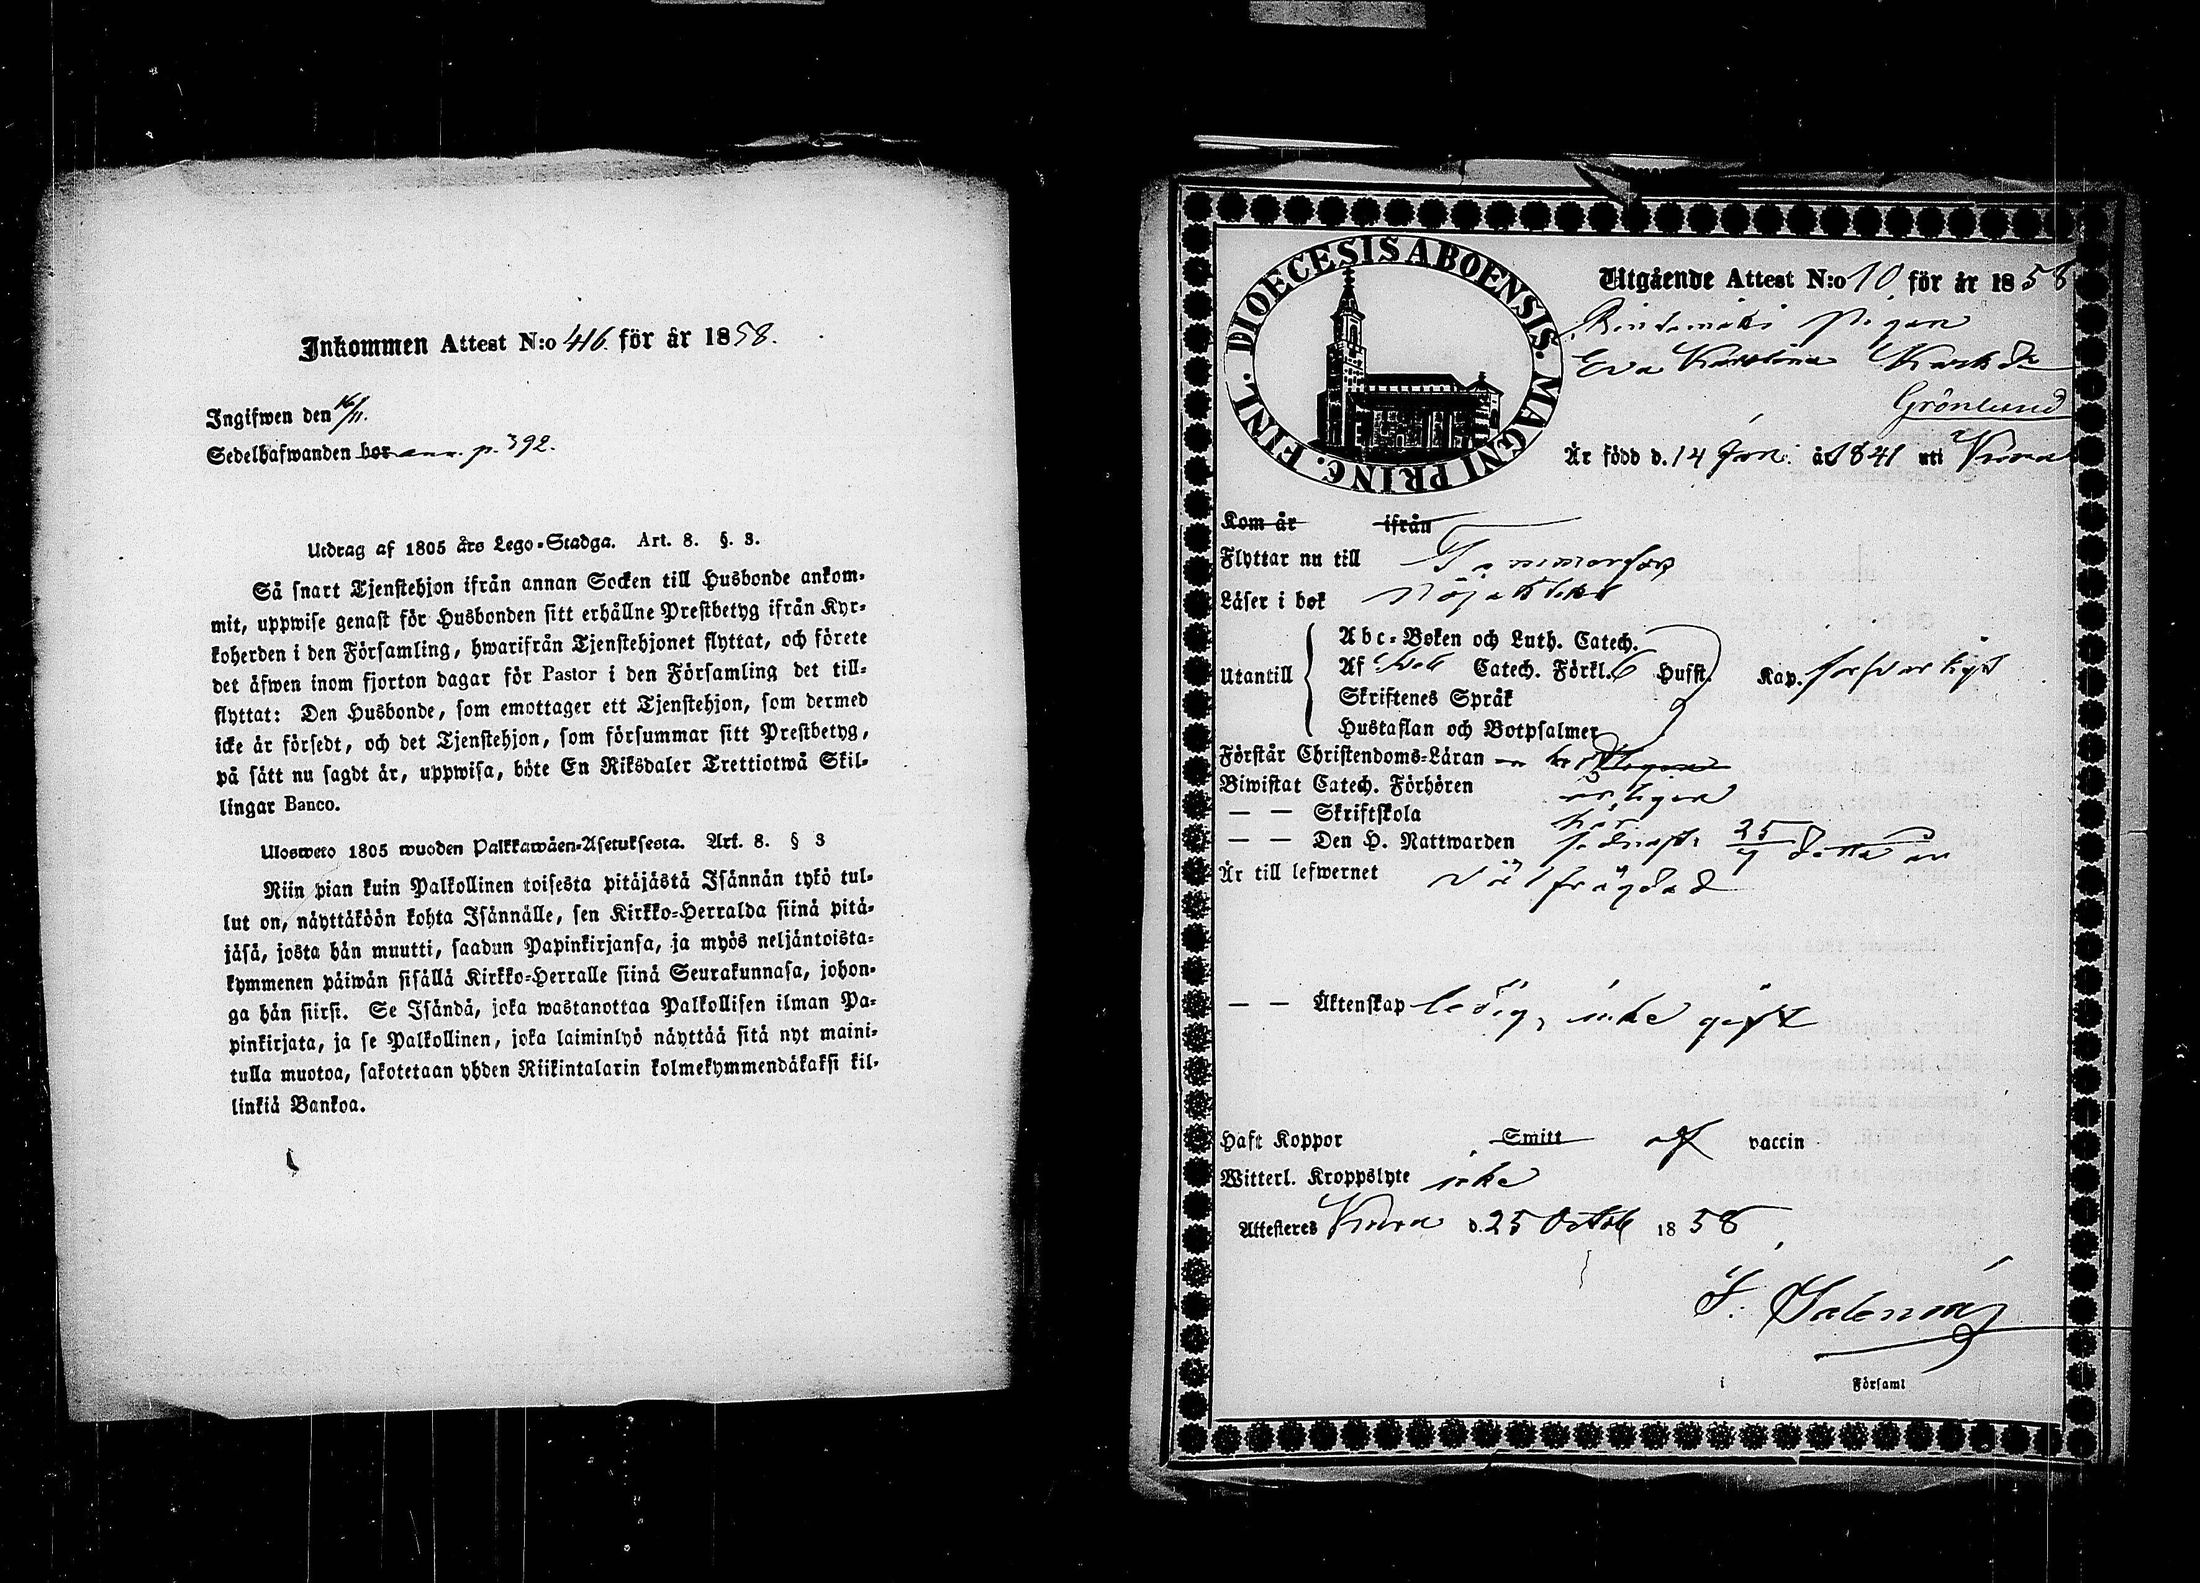 Inkommen Attest N:o 416. för år 1858.
Ingifwen den 16/11.
Sedelhafwanden bor ann. p. 392.
Utdrag af 1805 års Lego-Stadga. Art. 8. §. 3.
Så snart Tjenstehjon ifrån annan Socken till Husbonde ankom-
mit, uppwise genast för Husbonden sitt erhållne Prestbetyg ifrån Kyr-
koherden i den Församling, hwarifrån Tjenstehjonet flyttat, och förete
det äfwen inom fjorton dagar för Pastor i den Församling det till-
flyttat: Den Husbonde, som emottager ett Tjenstehjon, som dermed
icke är försedt, och det Tjenstehjon, som försummar sitt Prestbetyg,
på sätt nu sagdt är, uppwisa, böte En Riksdaler Trettiotwå Skil-
lingar Banco.
Ulosweto 1805 wuoden Palkkawäen-Asetuksesta. Art. 8. § 3
Niin pian kuin Palkollinen toisesta pitäjästä Isännän tykö tul-
lut on, näyttäköön kohta Isännälle, sen Kirkko-Herralda siinä pitä-
jäsä, josta hän muutti, saadun Papinkirjansa, ja myös neljäntoista-
kymmenen päiwän sisällä Kirkko-Herralle siinä Seurakunnasa, johon-
ga hän siirsi. Se Isändä, joka wastanottaa Palkollisen ilman Pa-
pinkirjata, ja se Palkollinen, joka laiminlyö näyttää sitä nyt maini-
tulla muotoa, sakotetaan yhden Riikintalarin kolmekymmendäkaksi kil-
linkiä Bankoa.
DIOECESIS ABOENSIS. MAGNI PRINC. FINL.
Utgående Attest N:o 10 för år 1858
pigan
Eva Karolina
Grönlund
Är född d. 14 Jan. år 1841 uti Kiura
Kom år ifrån
Flyttar nu till Tammerfors
Läser i bok nöjaktikt
Utantill
Abc-Boken och Luth. Catech.
Af Sveb Catech. Förkl. 6 Hufst. Kap. försvarligt
Skriftenes Språk
Hustaflan och Botpsalmer
Förstår Christendoms-Läran
Biwistat Catech. Förhören årligen
— — Skriftskola här
— — Den H. Nattwarden sednast 25/4 detta år
Är till lefwernet välfrägdad
— — Äktenskap ledig, icke gift
Haft Koppor Smitt af vaccin
Witterl. Kroppslyte icke
Attesteres Kiura d. 25 Octob 1858
F. Salenius
i Församl